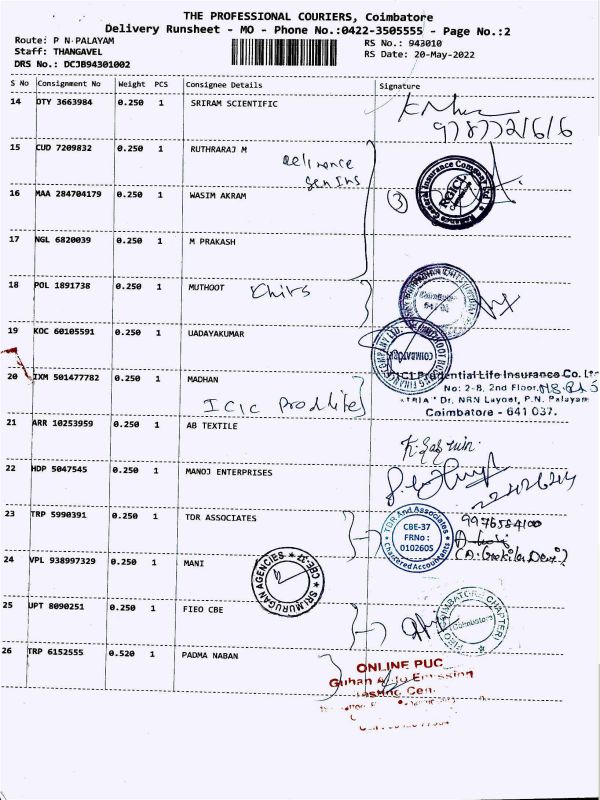 THE PROFESSIONAL COURIERS, Coimbatore
Delivery Runsheet - MO - Phone No.:0422-3505555 - Page No.:2
Route: P N PALAYAM
RS No.: 943010
Staff: THANGAVEL
RS Date: 20-May-2022
DRS No.: DCJB94301002
S No Consignment No Weight PCS Consignee Details Signature
14 DTY 3663984 0.250 1 SRIRAM SCIENTIFIC
15 CUD 7209832 0.250 1 RUTHRARAJ M
Reliance
16 MAA 284704179 0.250 1 WASIM AKRAM
3
17 NGL 6820039 0.250 1 M PRAKASH
18 POL 1891738 0.250 1 MUTHOOT
Coimbatore
19 KOC 60105591 0.250 1 UADAYAKUMAR
COIMBATORE
20 IXM 501477782 0.250 1 MADHAN
Prudential Life Insurance Co. Lt
No: 2-8, 2nd Floor,
"TRIA" Dr. NRN Layout, P.N. Palayam
Coimbatore - 641 037.
21 ARR 10253959 0.250 1 AB TEXTILE
22 HDP 5047545 0.250 1 MANOJ ENTERPRISES
23 TRP 5990391 0.250 1 TDR ASSOCIATES
TDR And Associates
CBE-37
FRNo :
010260S
Chartered Accountants
9976584100
24 VPL 938997329 0.250 1 MANI
SRI MURUGAN AGENCIES
CBE-37
25 UPT 8090251 0.250 1 FIEO CBE
Coimbatore
26 TRP 6152555 0.520 1 PADMA NABAN
ONLINE PUC
Guhan Auto Emission
Testing Cen